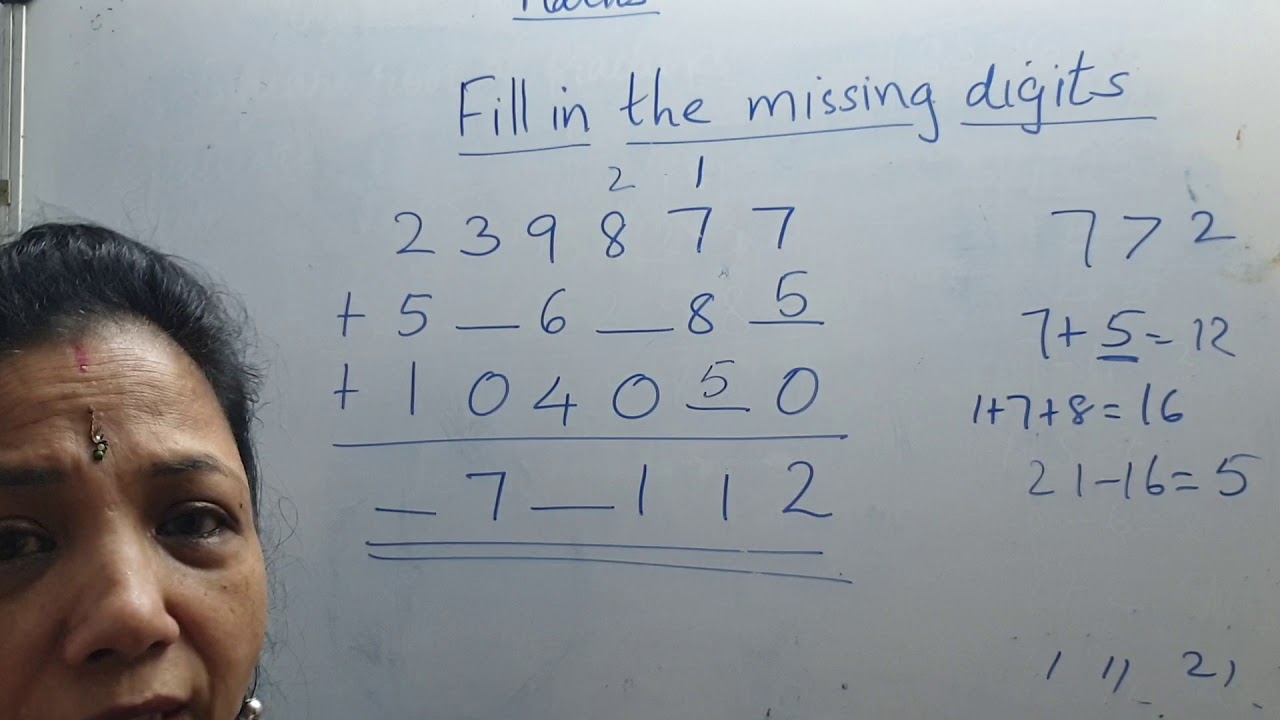 Maths
Fill in the missing digits
2 1
2 3 9 8 7 7
+ 5 _ 6 _ 8 5
+ 1 0 4 0 5 0
_ 7 _ 1 1 2
7 > 2
7 + 5 = 12
1+7+8 = 16
21-16 = 5
1 11 21